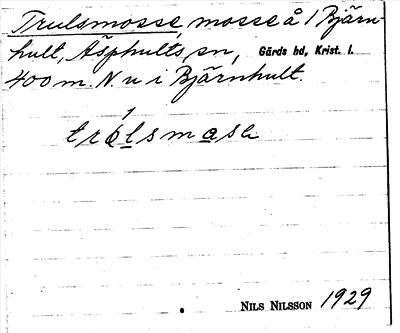 Trulsmosse, mosse å 1 Bjärn-
hult, Äsphults sn, Gärds hd, Krist. l.
400 m. N. u i Bjärnhult.
NILS NILSSON 1929